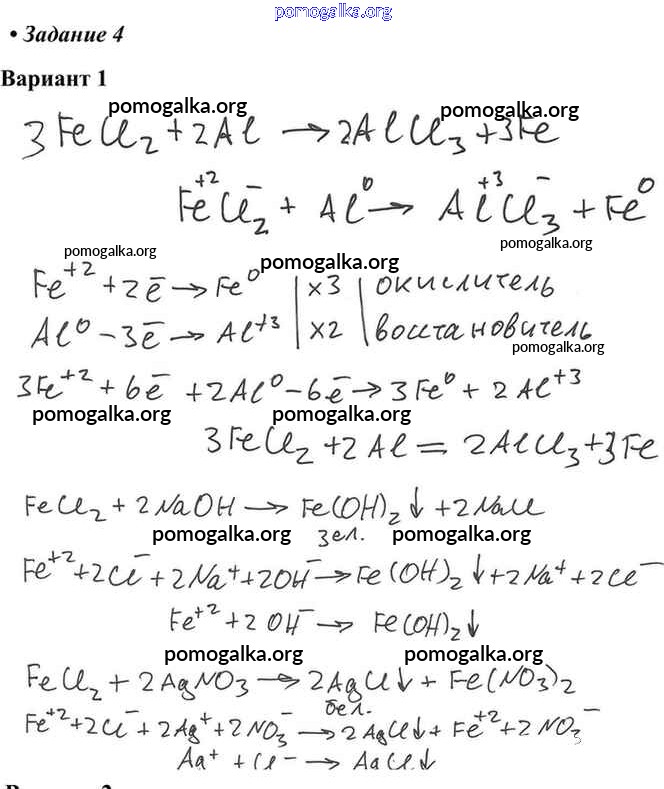 pomogalka.org
• Задание 4
Вариант 1
pomogalka.org pomogalka.org
3FeCl₂ + 2Al → 2AlCl₃ + 3Fe
Fe⁺²Cl₂⁻ + Al⁰ → Al⁺³Cl₃⁻ + Fe⁰
pomogalka.org pomogalka.org pomogalka.org
Fe⁺² + 2ē → Fe⁰ | x3 | окислитель
Al⁰ - 3ē → Al⁺³ | x2 | восстановитель
pomogalka.org
3Fe⁺² + 6ē + 2Al⁰ - 6ē → 3Fe⁰ + 2Al⁺³
pomogalka.org pomogalka.org
3FeCl₂ + 2Al = 2AlCl₃ + 3Fe
FeCl₂ + 2NaOH → Fe(OH)₂↓ + 2NaCl
pomogalka.org зел. pomogalka.org
Fe⁺² + 2Cl⁻ + 2Na⁺ + 2OH⁻ → Fe(OH)₂↓ + 2Na⁺ + 2Cl⁻
Fe⁺² + 2OH⁻ → Fe(OH)₂↓
pomogalka.org pomogalka.org
FeCl₂ + 2AgNO₃ → 2AgCl↓ + Fe(NO₃)₂
бел.
Fe⁺² + 2Cl⁻ + 2Ag⁺ + 2NO₃⁻ → 2AgCl↓ + Fe⁺² + 2NO₃⁻
Ag⁺ + Cl⁻ → AgCl↓